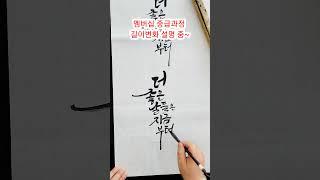 멤버십 중급과정
길이변화 설명 중~
더
좋은
날들은
지금
부터
더
좋은
날들은
지금
부터